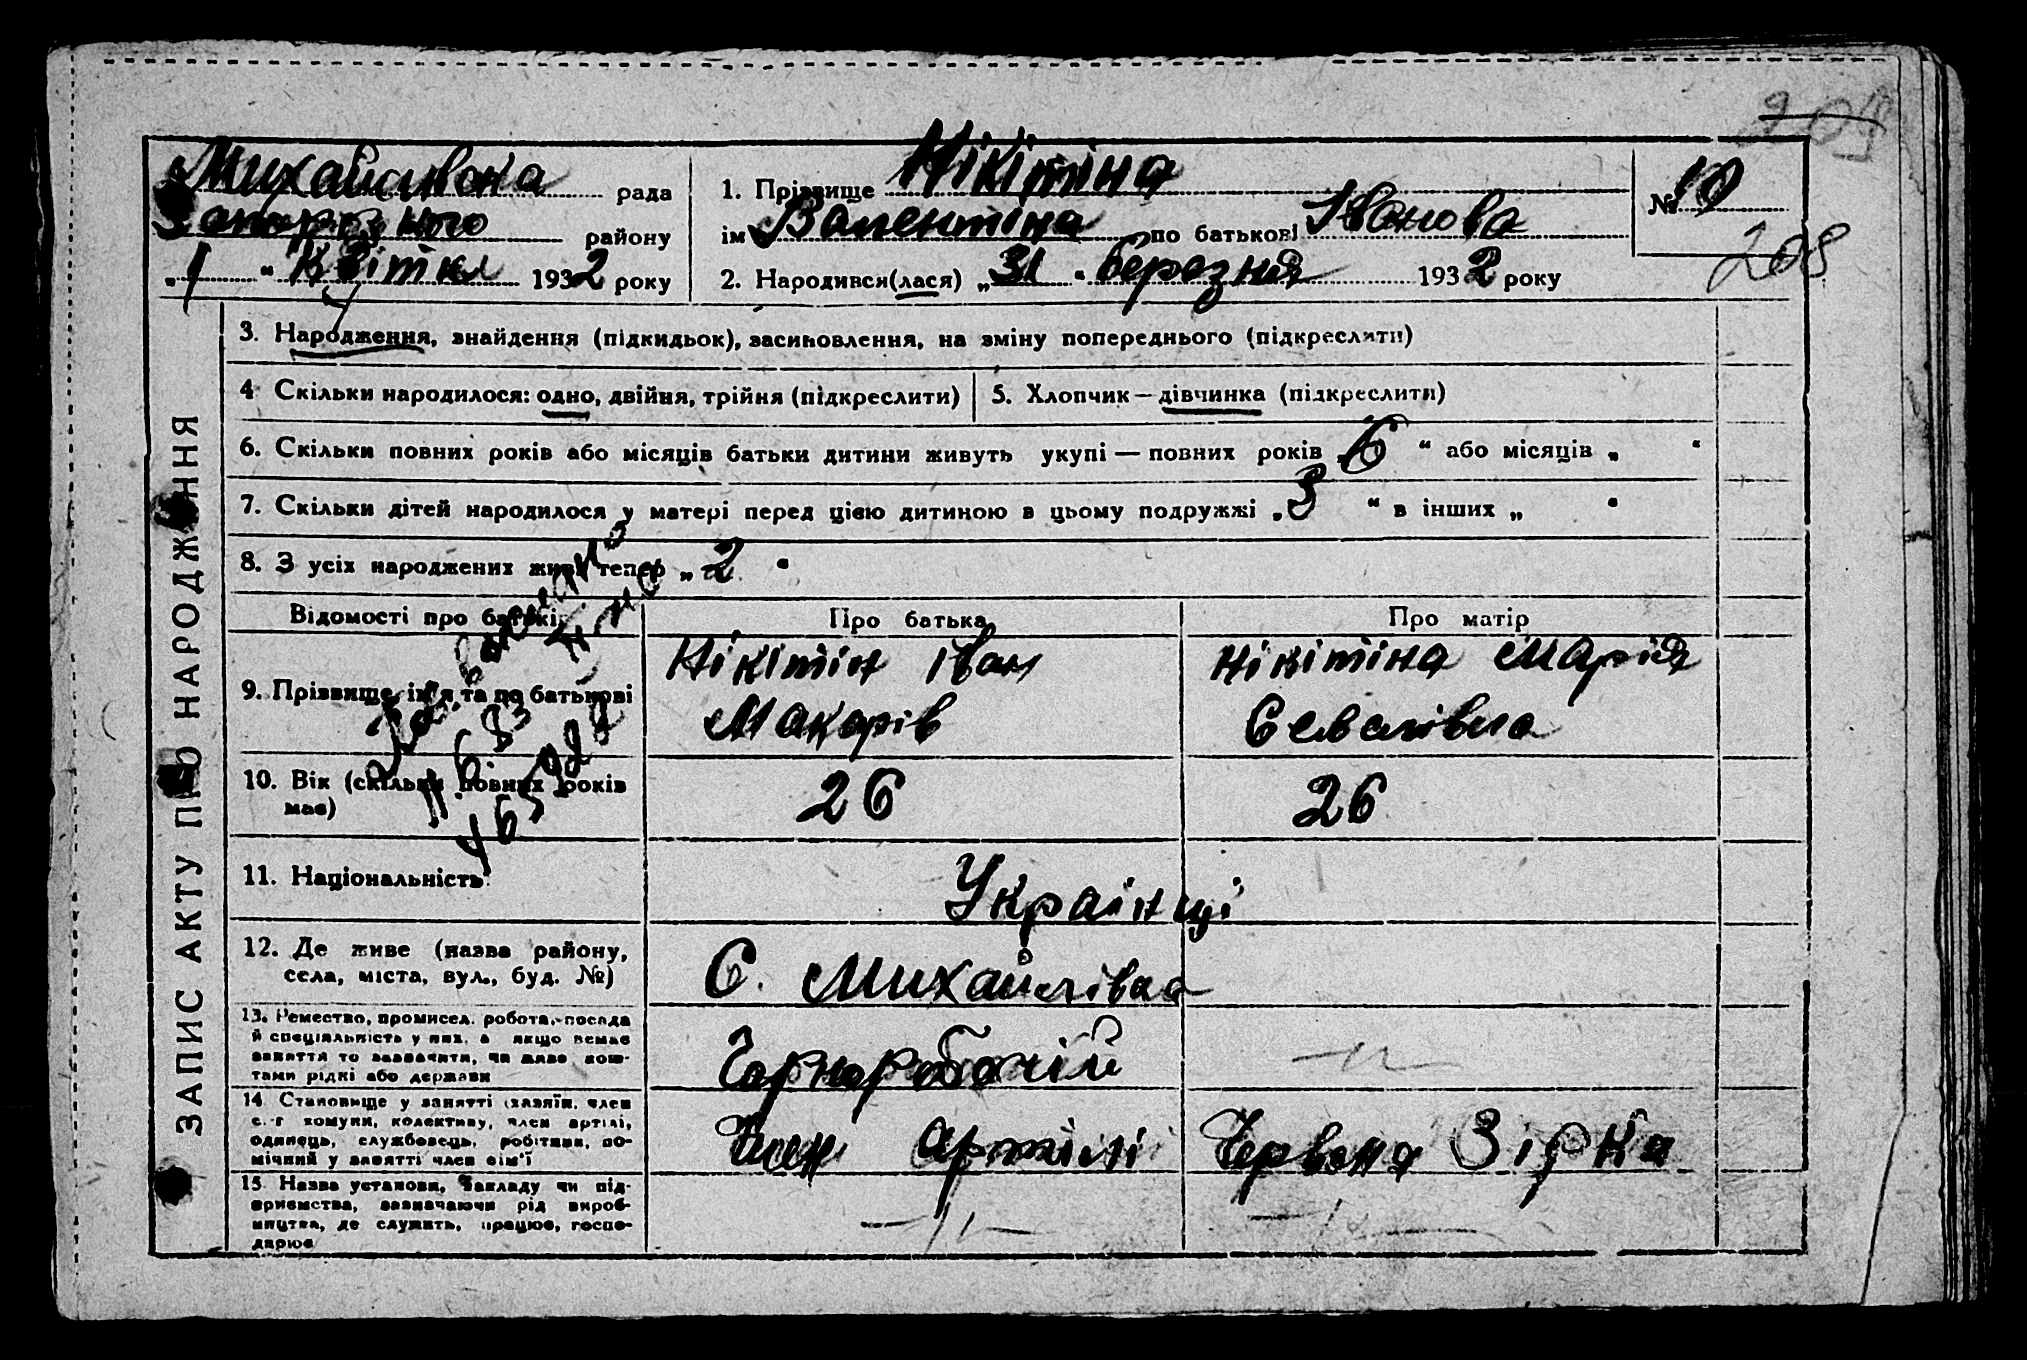 209
Михайлівська рада
Запорізького району
„1“ Квітня 1932 року
1. Прізвище Нікітіна
ім Валентіна по батькові Іванова
2. Народився(лася) „31“ березня 1932 року
№ 10
208
ЗАПИС АКТУ ПРО НАРОДЖЕННЯ
3. Народження, знайдення (підкидьок), засиновлення, на зміну попереднього (підкреслити)
4 Скільки народилося: одно, двійня, трійня (підкреслити)
5. Хлопчик — дівчинка (підкреслити)
6. Скільки повних років або місяців батьки дитини живуть укупі — повних років „6“ або місяців „ “
7. Скільки дітей народилося у матері перед цією дитиною в цьому подружжі „3“ в інших „ “
8. З усіх народжених живі тепер „2“
Відомості про батьків Про батька Про матір
9. Прізвище, ім'я та по батькові
Нікітін Іван
Макарів
Нікітіна Марія
Савелівна
10. Вік (скільки повних років
має)
26
26
11. Національність
Українці
12. Де живе (назва району,
села, міста, вул., буд. №)
С. Михайлівка
13. Ремество, промисел, робота, посада
й спеціяльність у них, а якщо немає
заняття то зазначити, чи живе кош-
тами рідні або держави
Чорноробочій
— „ —
14 Становище у занятті (хазяїн, член
с.-г комуни, колективу, член артілі,
одинець, службовець, робітник, по-
мічний у занятті член сім'ї
Член артілі Червона Зірка
15 Назва установи, закладу чи під-
приємства, зазначаючи рід вироб-
ництва, де служить, працює, госпо-
дарює
— „ —
— „ —